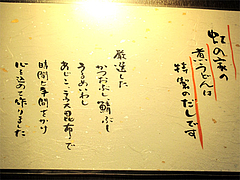 虹の家の
煮うどんは
特製のだしです
厳選した
かつおぶし 鯖ぶし
うるめいわし
あじこ、うす大昆布で
時間と手間をかけ
心を込めて作りました